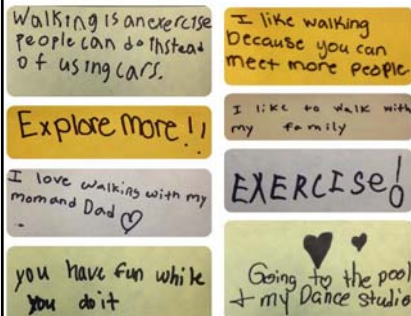 Walking is an exercise
people can do instead
of using cars.
Explore More!!
I love walking with my
mom and Dad
you have fun while
you do it
I like walking
because you can
meet more people
I like to walk with
my family
EXERCISE!
Going to the pool
+ my Dance studio